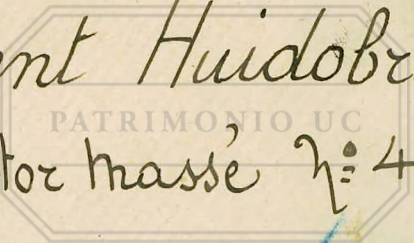 ent Huidobr
PATRIMONIO UC
tor Massé Nº 4